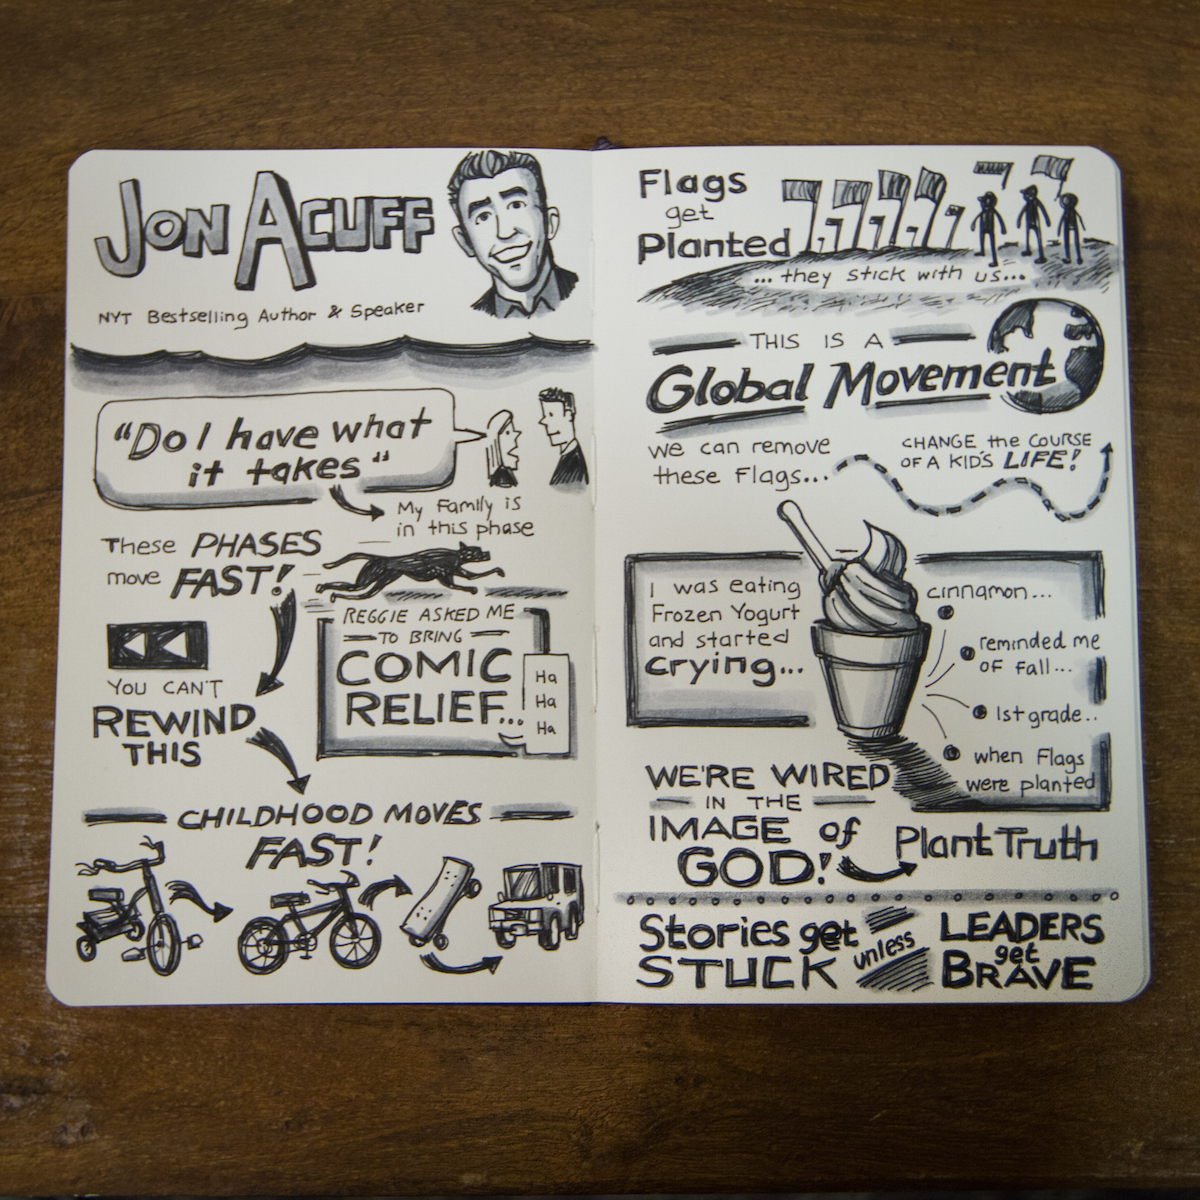 JON ACUFF
NYT Bestselling Author & Speaker
"Do I have what
it takes"
My Family is
in this phase
These PHASES
move FAST!
YOU CAN'T
REWIND
THIS
REGGIE ASKED ME
TO BRING
COMIC
RELIEF...
Ha
Ha
Ha
CHILDHOOD MOVES
FAST!
Flags
get
Planted
... they stick with us...
THIS IS A
Global Movement
we can remove
these Flags...
CHANGE the COURSE
OF A KID'S LIFE!
I was eating
Frozen Yogurt
and started
crying...
cinnamon...
reminded me
of fall...
1st grade..
when Flags
were planted
WE'RE WIRED
IN THE
IMAGE of
GOD!
Plant Truth
Stories get
STUCK
unless
LEADERS
get
BRAVE